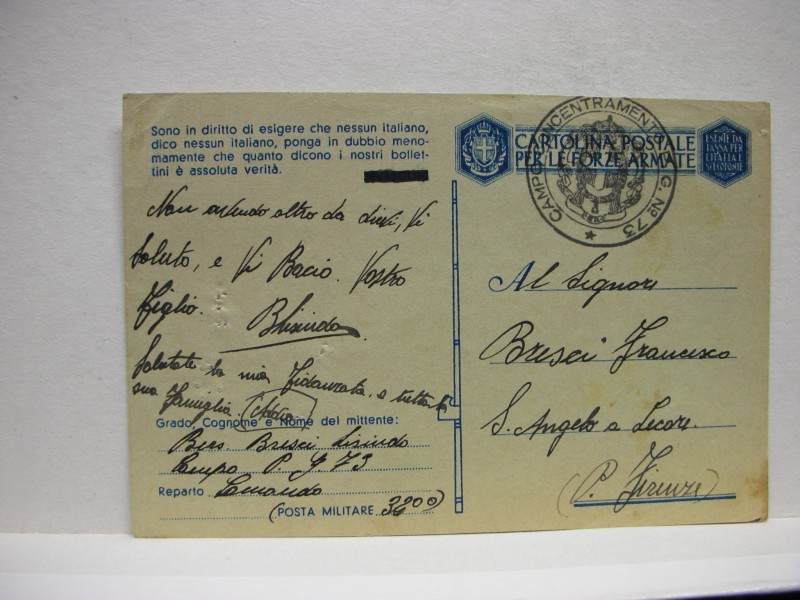 Sono in diritto di esigere che nessun italiano,
dico nessun italiano, ponga in dubbio meno-
mamente che quanto dicono i nostri bollet-
tini è assoluta verità.
Non avendo altro da dirvi, Vi
Saluto, e Vi Bacio. Vostro
Figlio.
Salutate la mia Fidanzata e tutta la
sua Famiglia.
Grado, Cognome e Nome del mittente:
Bresci
Campo P. G 73
Reparto Comando
(POSTA MILITARE 3200)
CARTOLINA POSTALE
PER LE FORZE ARMATE
ESENTE DA
TASSA PER
L'ITALIA E
CAMPO CONCENTRAMENTO P. G. Nº 73
Al Signor
Bresci Francesco
S. Angelo a Lecore.
(P. Firenze)